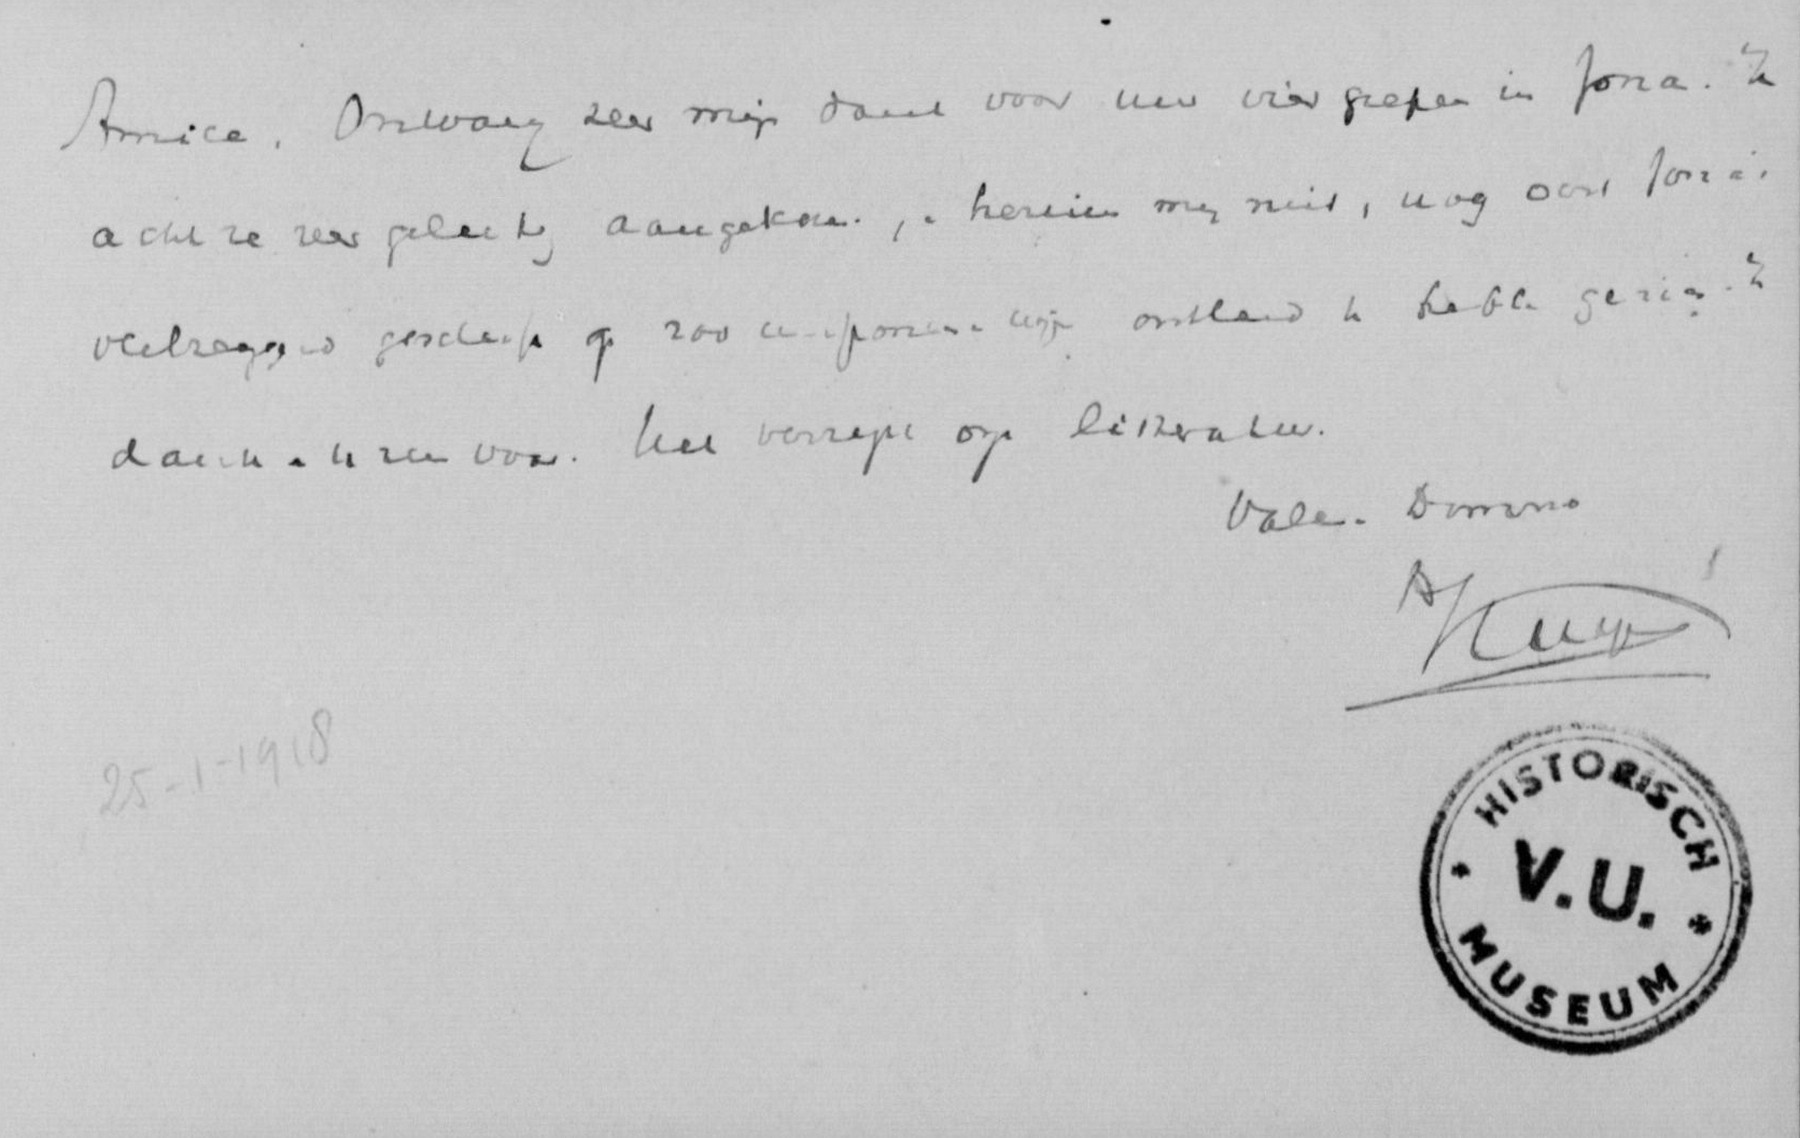 Amice. Ontvang zeer mijn dank voor uw vier grepen in Jona. Ik
acht ze zeer gelukkig aangekom. herinner mij niet, nog ooit Jona's
veelzeggend geschrift op zoo wijze ontleed te hebb. gezien. Ik
dank u zeer voor. Het verrijkt onze litteratuur.
Vale. Domino
A Kuyper
25-1-1918
HISTORISCH
V.U.
MUSEUM